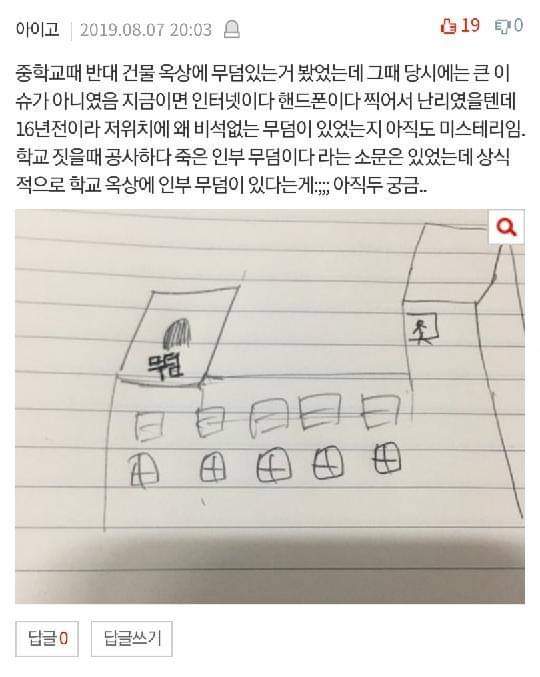 아이고 2019.08.07 20:03 19 0
중학교때 반대 건물 옥상에 무덤있는거 봤었는데 그때 당시에는 큰 이
슈가 아니였음 지금이면 인터넷이다 핸드폰이다 찍어서 난리였을텐데
16년전이라 저위치에 왜 비석없는 무덤이 있었는지 아직도 미스테리임.
학교 짓을때 공사하다 죽은 인부 무덤이다 라는 소문은 있었는데 상식
적으로 학교 옥상에 인부 무덤이 있다는게:;;; 아직두 궁금..
무덤
답글 0 답글쓰기